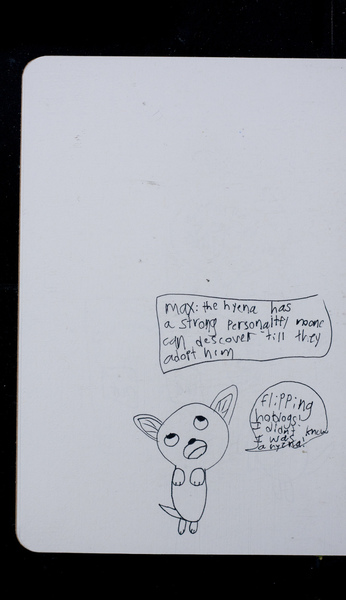 max: the hyena has
a strong personaltey noone
can descover till they
adopt him
flipping
hotdogs!
I didnt know
I was
a hyena!